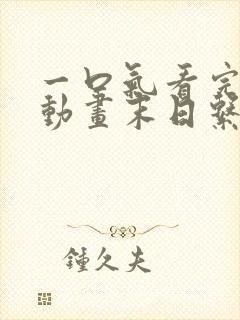 一口氣看完
動畫末日繫
鍾久夫